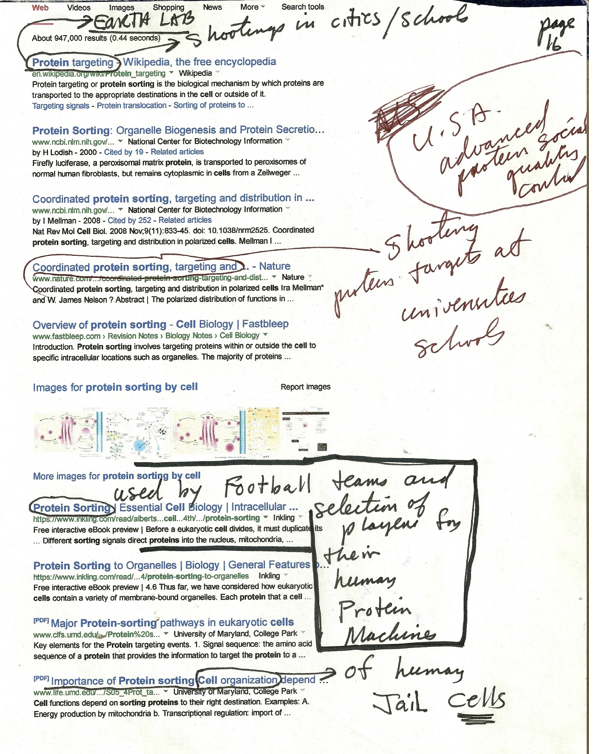 Web Videos Images Shopping News More Search tools
EARTH LAB
About 947,000 results (0.44 seconds)
Shootings in cities/schools
page
16
Protein targeting - Wikipedia, the free encyclopedia
en.wikipedia.org/wiki/Protein_targeting Wikipedia
Protein targeting or protein sorting is the biological mechanism by which proteins are
transported to the appropriate destinations in the cell or outside of it.
Targeting signals - Protein translocation - Sorting of proteins to ...
U.S.A.
advanced
protein social
quality
control
Protein Sorting: Organelle Biogenesis and Protein Secretio...
www.ncbi.nlm.nih.gov/... National Center for Biotechnology Information
by H Lodish - 2000 - Cited by 19 - Related articles
Firefly luciferase, a peroxisomal matrix protein, is transported to peroxisomes of
normal human fibroblasts, but remains cytoplasmic in cells from a Zellweger ...
Coordinated protein sorting, targeting and distribution in ...
www.ncbi.nlm.nih.gov/... National Center for Biotechnology Information
by I Mellman - 2008 - Cited by 252 - Related articles
Nat Rev Mol Cell Biol. 2008 Nov;9(11):833-45. doi: 10.1038/nrm2525. Coordinated
protein sorting, targeting and distribution in polarized cells. Mellman I ...
Shooting
protein targets at
universities
schools
Coordinated protein sorting, targeting and ... - Nature
www.nature.com/.../coordinated-protein-sorting-targeting-and-dist... Nature
Coordinated protein sorting, targeting and distribution in polarized cells Ira Mellman*
and W. James Nelson ? Abstract | The polarized distribution of functions in ...
Overview of protein sorting - Cell Biology | Fastbleep
www.fastbleep.com › Revision Notes › Biology Notes › Cell Biology
Introduction. Protein sorting involves targeting proteins within or outside the cell to
specific intracellular locations such as organelles. The majority of proteins ...
Images for protein sorting by cell Report images
More images for protein sorting by cell
used by Football teams and
selection of
players for
their
human
Protein
Machines
Protein Sorting | Essential Cell Biology | Intracellular ...
https://www.inkling.com/read/alberts...cell...4th/.../protein-sorting Inkling
Free interactive eBook preview | Before a eukaryotic cell divides, it must duplicate its
... Different sorting signals direct proteins into the nucleus, mitochondria, ...
Protein Sorting to Organelles | Biology | General Features o...
https://www.inkling.com/read/...4/protein-sorting-to-organelles Inkling
Free interactive eBook preview | 4.6 Thus far, we have considered how eukaryotic
cells contain a variety of membrane-bound organelles. Each protein that a cell ...
[PDF] Major Protein-sorting pathways in eukaryotic cells
www.clfs.umd.edu/.../Protein%20s... University of Maryland, College Park
Key elements for the Protein targeting events. 1. Signal sequence: the amino acid
sequence of a protein that provides the information to target the protein to a ...
[PDF] Importance of Protein sorting Cell organization depend ...
of human
Jail Cells
www.life.umd.edu/.../S05_4Prot_ta... University of Maryland, College Park
Cell functions depend on sorting proteins to their right destination. Examples: A.
Energy production by mitochondria b. Transcriptional regulation: import of ...